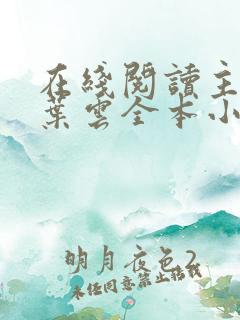 在綫閱讀主
葉雲全本小
明月夜色2
未經同意禁止搭載